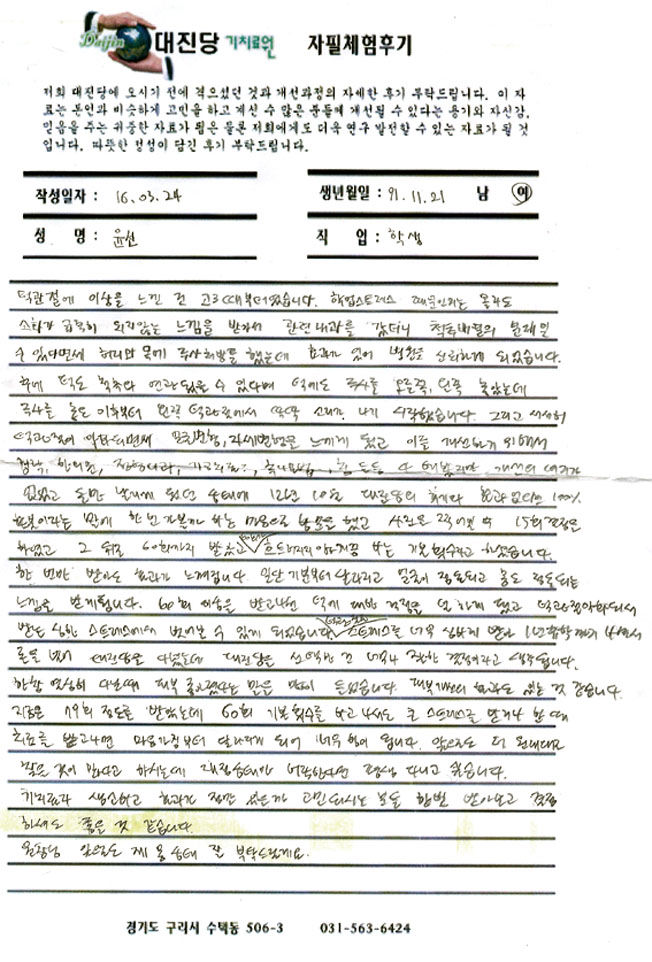 Daijin 대진당 기치료원 자필체험후기
저희 대진당에 오시기 전에 겪으셨던 것과 개선과정의 자세한 후기 부탁드립니다. 이 자
료는 본인과 비슷하게 고민을 하고 계신 수 많은 분들께 개선될 수 있다는 용기와 자신감,
믿음을 주는 귀중한 자료가 됨은 물론 저희에게도 더욱 연구 발전할 수 있는 자료가 될 것
입니다. 따뜻한 정성이 담긴 후기 부탁드립니다.
작성일자 : 16.03.24 생년월일 : 91.11.21 남 여
성 명 : 윤선 직 업 : 학생
턱관절에 이상을 느낀 건 고3때부터였습니다. 학업스트레스 때문인지는 몰라도
소화가 급격히 되지않는 느낌을 받아서 관련내과를 갔더니 척추배열의 문제일
수 있다면서 허리와 목에 주사치료를 했는데 효과가 없어 병원을 신뢰하게 되었습니다.
후에 턱도 척추와 연관있을 수 있다며 턱에도 주사를 오른쪽, 왼쪽 놓았는데
주사를 놓은 이후부터 왼쪽 턱관절에서 딱딱 소리가 나기 시작했습니다. 그리고 서서히
턱관절이 악화되면서 모친변형, 자세변형을 느끼게 됐고 이를 개선하기 위해서
한의원, 치과 등등 다 해봤지만 개선의 여지가
없었고 12년 10월 대진당의 후기와 효과 없으면 100%
환불이라는 말에 한 번 가볼까 하는 마음으로 방문을 했고 사진은 찍어본 후 15회 결정은
하였고 그 뒤로 60회까지 받았고 흐트러지지 않게끔 하는 기본 횟수라고 하셨습니다
한 번만 받아도 효과가 느껴집니다. 일단 기분부터 달라지고 얼굴이 정돈되고 몸도 정돈되는
느낌을 받게됩니다. 60회 이상을 받고나선 턱에 대한 걱정을 덜 하게 됐고 턱관절악화되서
받는 심한 스트레스에서 벗어날 수 있게 되었습니다. 스트레스를 너무 심하게 받아 1년 휴학까지 내면서
대진당을 다녔는데 대진당을 선택한 건 너무나 잘한 결정이라고 생각됩니다.
한참 열심히 다닐때 피부 좋아졌다는 말을 많이 들었습니다. 피부개선의 효과도 있는 것 같습니다.
지금은 79회 정도를 받았는데 60회 기본횟수를 받고 나서도 큰 스트레스를 받거나 할 때
치료를 받고나면 마음가짐부터 달라지게 되어 너무 힘이 됩니다. 앞으로도 더 원대대로
찾을 것이 많다고 하시는데 재정상태가 허락한다면 평생 다니고 싶습니다.
기치료가 생소하고 효과가 정말 있을까 고민되시는 분들 한번 받아보고 결정
하셔도 좋을 것 같습니다.
원장님 앞으로도 제 몸 상태 잘 부탁드릴게요.
경기도 구리시 수택동 506-3 031-563-6424